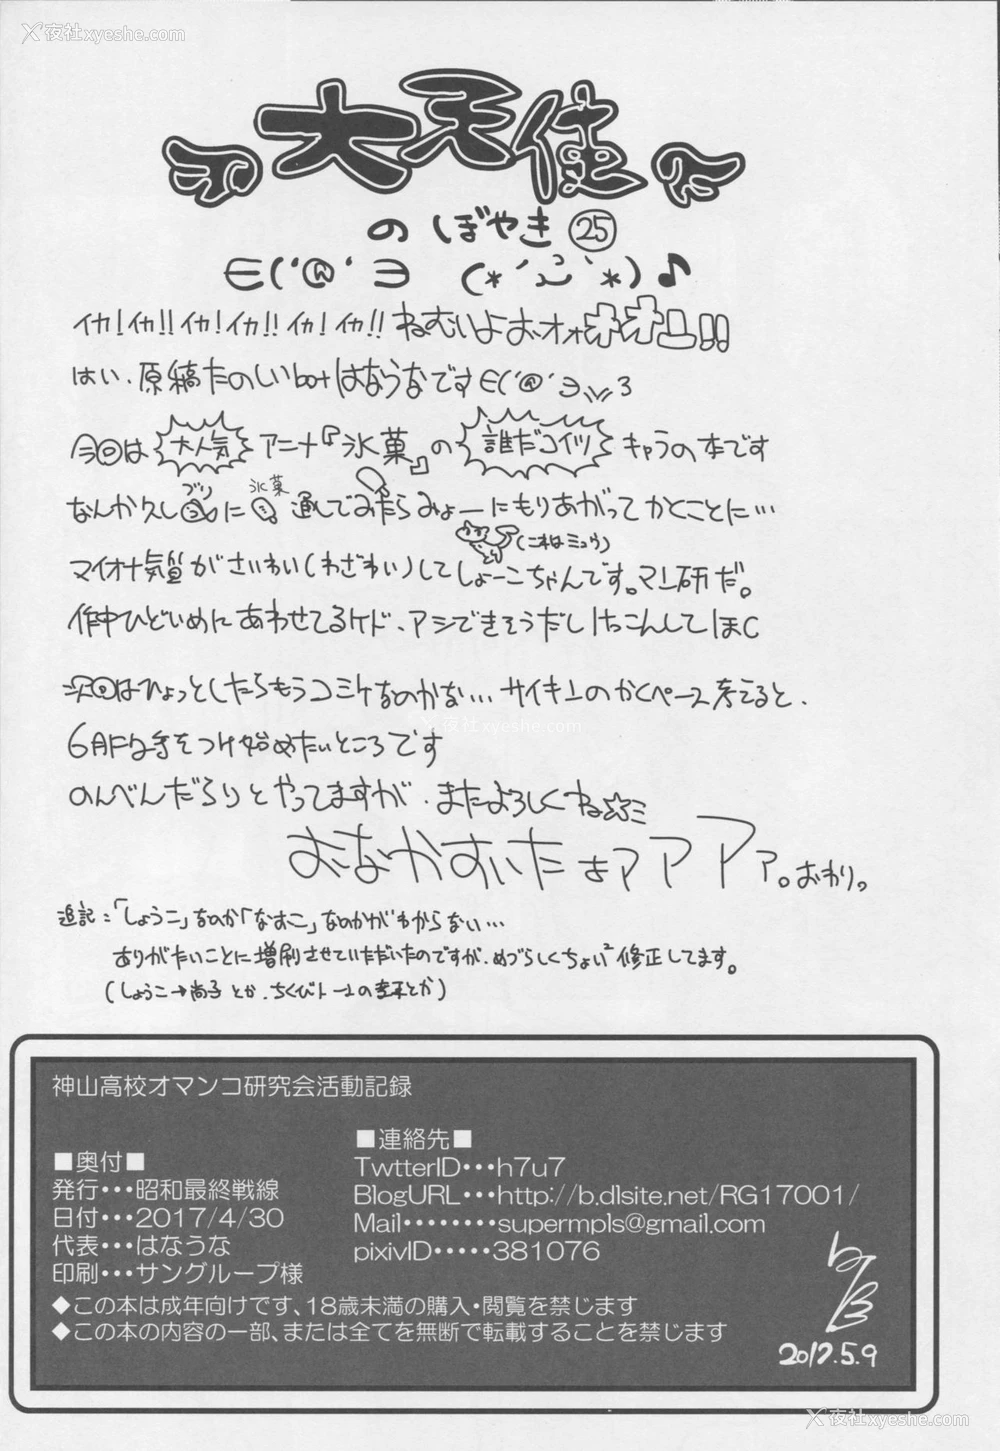 夜社xyeshe.com
夜社xyeshe.com
大天使
のぼやき㉕
∈('@'∋ (*´ `*)♪
イカ!イカ!!イカ!イカ!!イカ!イカ!!ねむいよおオォオオユ!!
はい、原稿たのしいbotはなうなです∈('@'∋ 3
今回は大人気アニメ『氷菓』の誰だコイツキャラの本です
なんか久しぶりに氷菓通しでみたらみょーにもりあがってかくことに…
(これはミュウ)
マイオナ気質がさいわい(わざわい)してしょーこちゃんです。マン研だ。
作中ひどいめにあわせてるケド、アシできそうだしけっこんしてほC
次回はひょっとしたらもうコミケなのかな…サイキンのかくペース考えると、
6月には手をつけ始めたいところです
のんべんだらりとやってますが、またよろしくね☆ミ
おなかすいたよアアアァ。おわり。
追記:「しょうこ」なのか「なおこ」なのかがわからない…
ありがたいことに増刷させていただいたのですが、めづらしくちょい²修正してます。
(しょうこ→尚子とか、ちくびトーンの さとか)
夜社xyeshe.com
神山高校オマンコ研究会活動記録
■奥付■
発行・・・昭和最終戦線
日付・・・2017/4/30
代表・・・はなうな
印刷・・・サングループ様
■連絡先■
TwtterID・・・h7u7
BlogURL・・・http://b.dlsite.net/RG17001/
Mail・・・・・・・・supermpls@gmail.com
pixivID・・・・・381076
◆この本は成年向けです、18歳未満の購入・閲覧を禁じます
◆この本の内容の一部、または全てを無断で転載することを禁じます
2017.5.9
夜社xyeshe.com